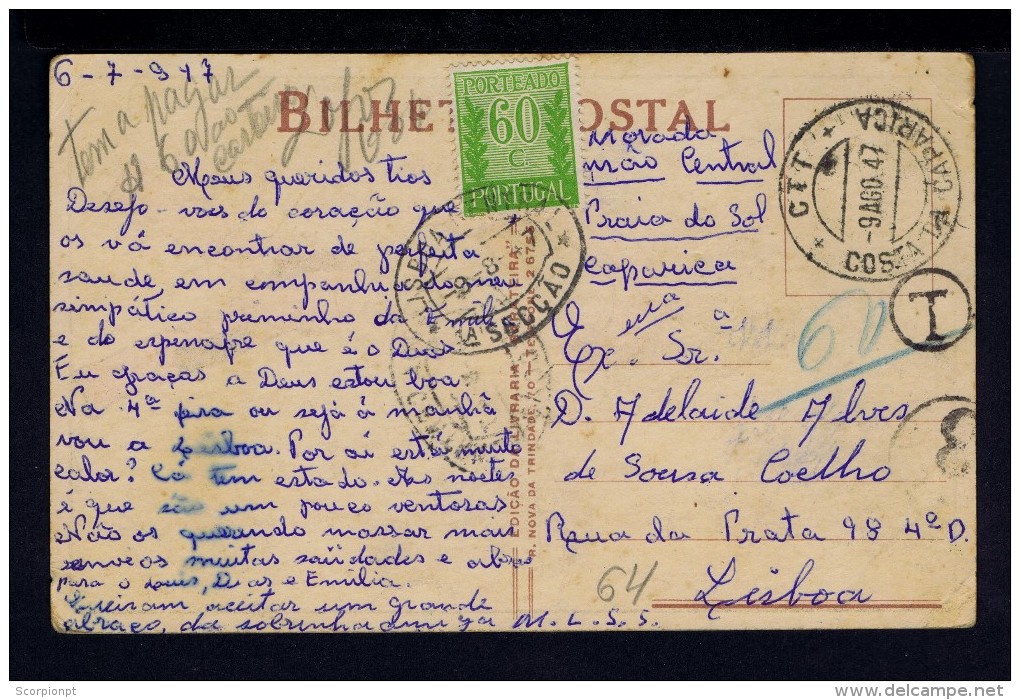 6-7-947
Tem a pagar
$60 ao
carteiro
BILHETE POSTAL
PORTEADO
60
C.
PORTUGAL
Meus queridos tios
Desejo-vos do coração que
os vá encontrar de perfeita
saude, em companhia do meu
simpático
e do que é o Dias
Eu graças a Deus estou boa.
Na 4ª ou sejá á manhã
vou a Lisboa. Por aí está muito
calor? Cá tem estado. As noites
é que são um pouco ventosas
Não os querendo massar mais
envios muitas saüdades e
para o Luis, Dias e Emilia.
Queiram aceitar um grande
abraço, da sobrinha amiga M. L. S. S.
Morada
Central
Praia do Sol
Caparica
Exma Sr.ª
D. Adelaide Alves
de Sousa Coelho
Rua da Prata 98 4º D.
Lisboa
CTT
-9 AGO. 47
COSTA DA CAPARICA
T
60
3
1ª SECÇÃO
9-8
EDIÇÃO DA LIVRARIA
R. NOVA DA TRINDADE
64
Scorpionpt
www.delcampe.net